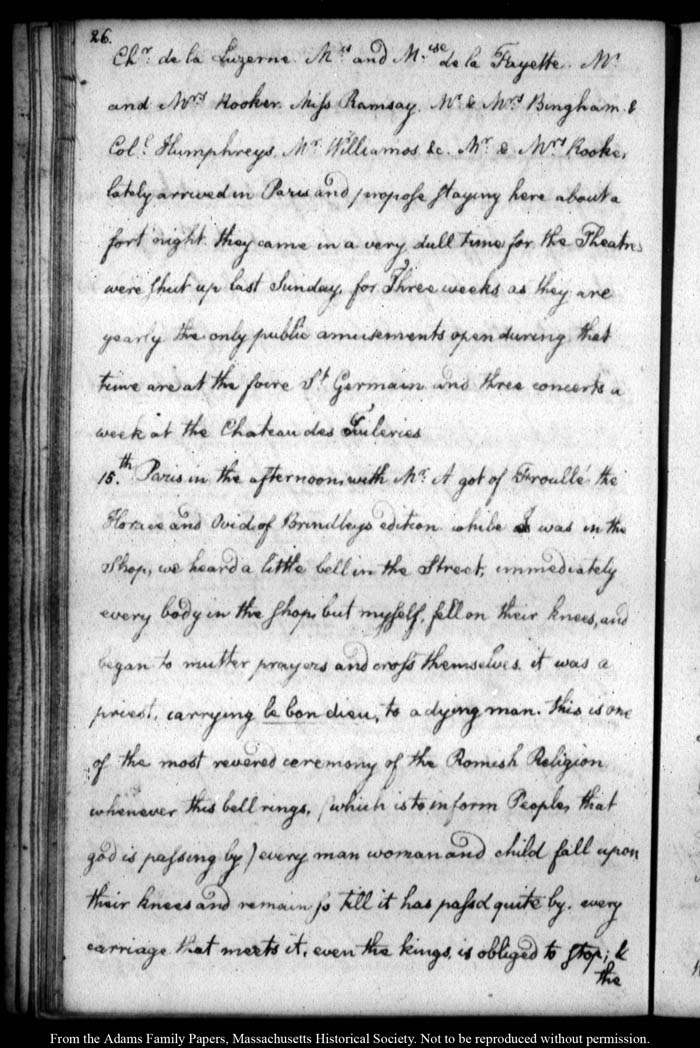 26.
Chr. de la Luzerne. Mis and Mise de la Fayette. Mr
and Mrs Rooker. Miss Ramsay. Mr & Mrs Bingham. &
Coll. Humphreys. Mr. Williamos &c. Mr. & Mrs Rooker
lately arrived in Paris and propose staying here about a
fort night. they came in a very dull time for the Theatres
were shut up last Sunday, for Three weeks as they are
yearly the only public amusements open during that
time are at the foire St Germain and three concerts a
week at the Chateau des Tuileries
15.th Paris in the afternoon, with Mr. A got of Froullé the
Horace and Ovid of Brindley's edition. while I was in the
Shop, we heard a little bell in the Street; immediately
every body in the shop, but myself, fell on their knees, and
began to mutter prayers and cross themselves. it was a
priest, carrying le bon dieu, to a dying man. this is one
of the most revered ceremony of the Romish Religion
whenever this bell rings, (which is to inform People, that
god is passing by) every man woman and child fall upon
their knees and remain so till it has passd quite by. every
carriage that meets it, even the kings, is obliged to stop; &
the
From the Adams Family Papers, Massachusetts Historical Society. Not to be reproduced without permission.